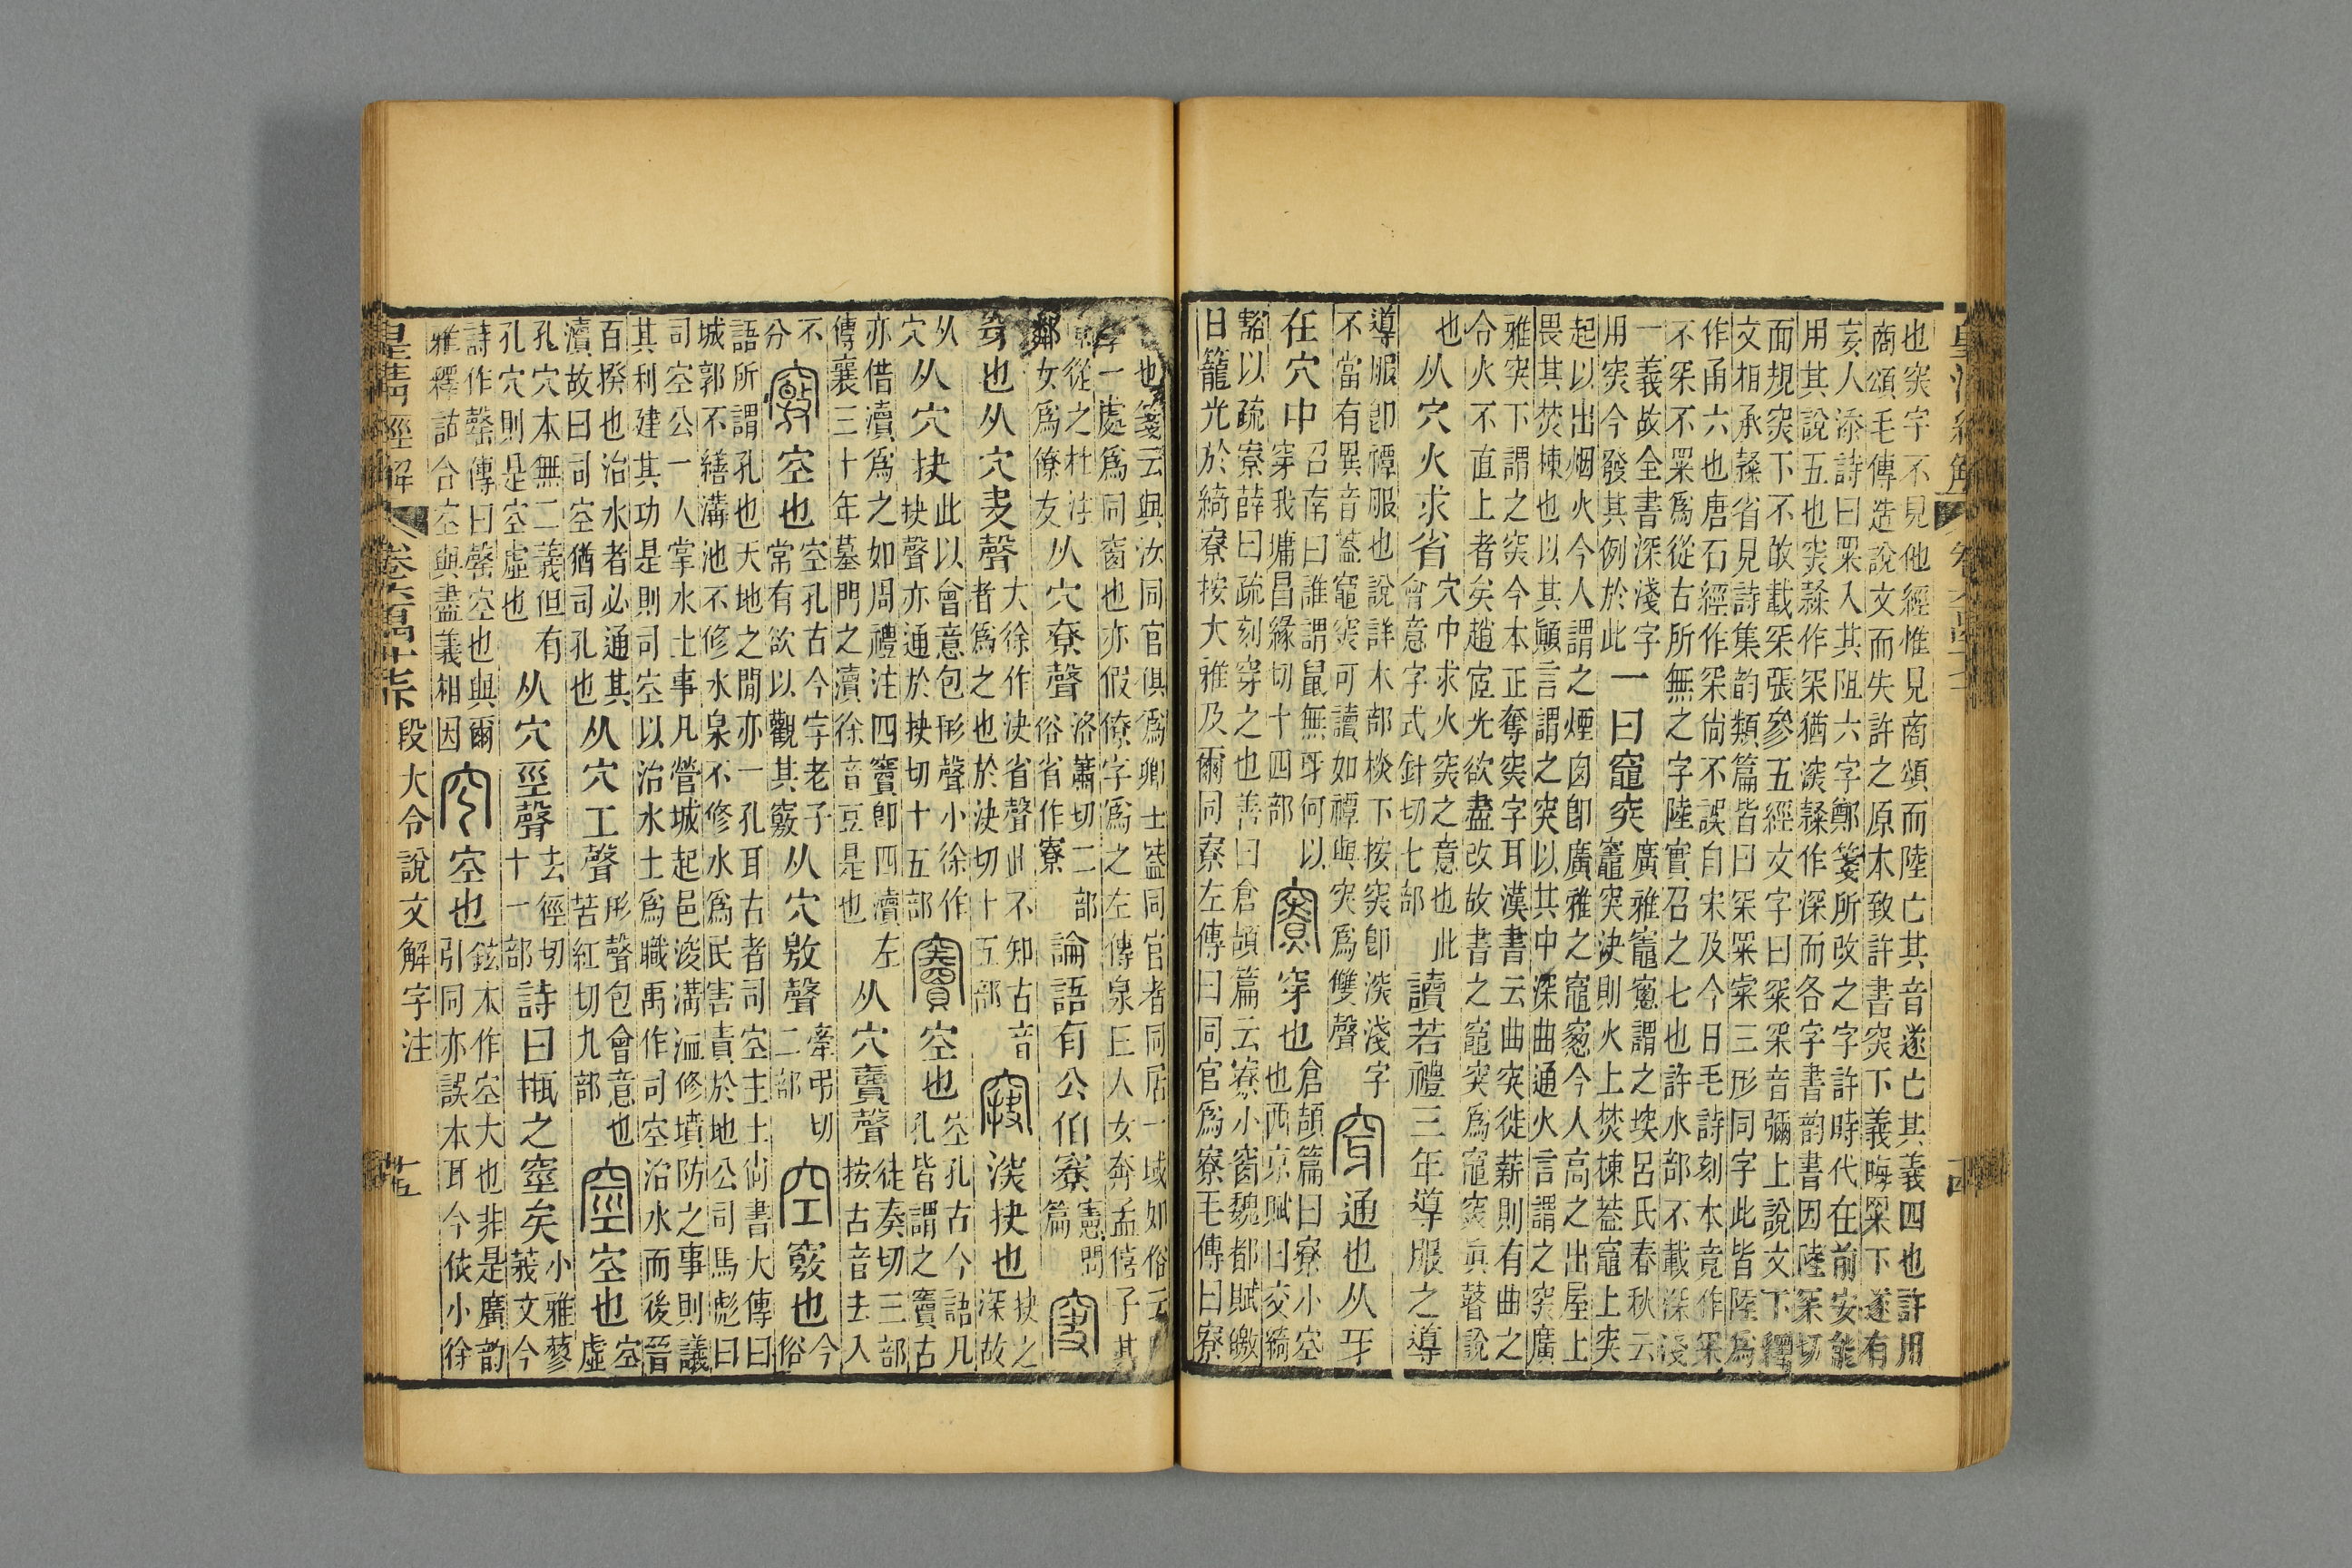 皇清經解 卷六百四十七 十四
也穾字不見他經惟見商頌而陸亡其音遂亡其義四也許用
商頌毛傳造說文而失許之原本致許書穾下義晦罙下遂有
妄人添詩曰罙入其阻六字鄭箋所改之字許時代在前安能
用其說五也穾隸作罙猶深隸作深而各字書韵書因陸罙切
面規穾下不敢載罙張參五經文字曰罙罙音彌上說文下釋
文相承隸省見詩集韵類篇皆曰罙罙寀三形同字此皆陸爲
作甬六也唐石經作罙尙不誤自宋及今日毛詩刻本竟作罙
不罙不罙爲從古所無之字陸實召之七也許水部不載深淺
一義故全書深淺字
用穾今發其例於此
一曰竈突
廣雅竈窻謂之堗呂氏春秋云
竈突決則火上焚棟蓋竈上突
起以出烟火今人謂之煙囪卽廣雅之竈窻今人高之出屋上
畏其焚棟也以其顚言謂之突以其中深曲通火言謂之穾廣
雅突下謂之穾今本正奪穾字耳漢書云曲突徙薪則有曲之
令火不直上者矣趙宧光欲盡改故書之竈突爲竈穾眞瞽說
也
从穴火求省
穴中求火穾之意也此
會意字式針切七部
讀若禮三年導服之導
導服卽禫服也說詳木部棪下按穾卽淡淺字
不當有異音蓋竈穾可讀如禫與突爲雙聲
穿 通也从牙
在穴中
召南曰誰謂鼠無牙何以
穿我墉昌緣切十四部
寮 穿也
倉頡篇曰寮小空
也西京賦曰交綺
豁以疏寮薛曰疏刻穿之也善曰倉頡篇云寮小窗魏都賦皦
日籠光於綺寮按大雅及爾同寮左傳曰同官爲寮毛傳曰寮
也箋云與汝同官俱爲卿士蓋同官者同居一域如俗云
一處爲同窗也亦假僚字爲之左傳泉丘人女奔孟僖子其
從之杜注
鄰女爲僚友
从穴尞聲
洛蕭切二部
俗省作寮
論語有公伯寮
憲問
篇
穿也从穴叏聲
大徐作決省聲此不知古音
者爲之也於決切十五部
深抉也
抉之
深故
从
穴
从穴抉
此以會意包形聲小徐作
抉聲亦通於抉切十五部
竇 空也
空孔古今語凡
孔皆謂之竇古
亦借瀆爲之如周禮注四竇卽四瀆左
傳襄三十年墓門之瀆徐音豆是也
从穴賣聲
徒奏切三部
按古音去入
不
分
竅 空也
空孔古今字老子
常有欲以觀其竅
从穴敫聲
牽弔切
二部
空 竅也
今
俗
語所謂孔也天地之閒亦一孔耳古者司空主土尙書大傳曰
城郭不繕溝池不修水泉不修水爲民害責於地公司馬彪曰
司空公一人掌水土事凡營城起邑浚溝洫修墳防之事則議
其利建其功是則司空以治水土爲職禹作司空治水而後晉
百揆也治水者必通其
瀆故曰司空猶司孔也
从穴工聲
形聲包會意也
苦紅切九部
窒 空也
空
虛
孔穴本無二義但有
孔穴則是空虛也
从穴巠聲
去徑切
十一部
詩曰缾之窒矣
小雅蓼
莪文今
詩作罄傳曰罄空也與爾
雅釋詁合空與盡義相因
空也
鉉本作空大也非是廣韵
引同亦誤本耳今依小徐
皇清經解 卷六百四十七 段大令說文解字注 十五